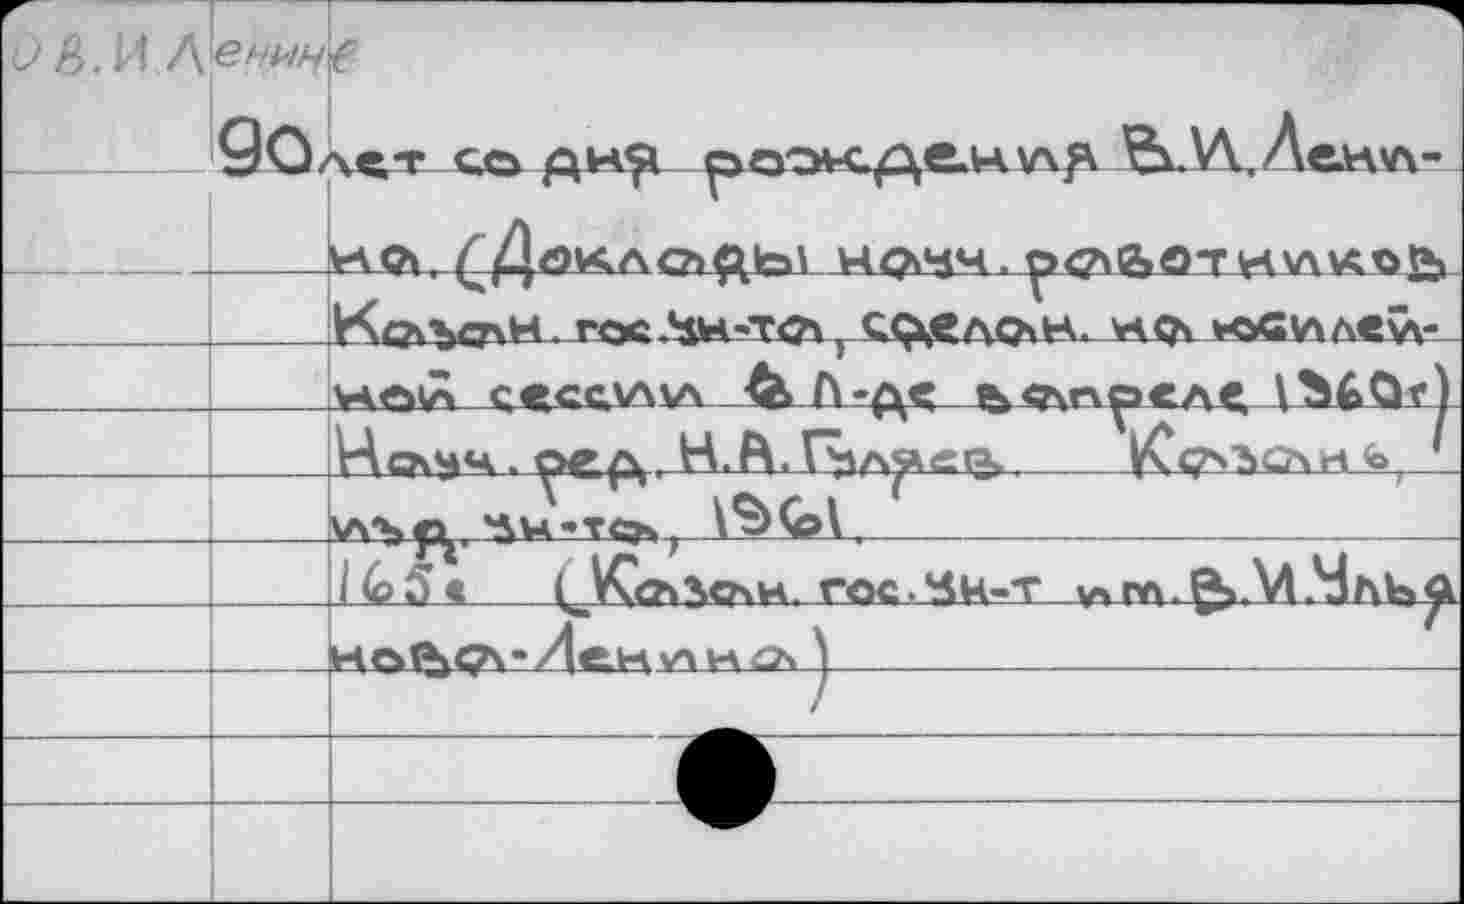 О В.И Ленине
90 лет со дня рождения В.И.Лени-
на. (Доклады научн. работников
Казан. гос.Ун-та, сделан. на юбилей-
ной сессии в А-де в апреле 1960г)
Научн. ред. Н.А.Гуляев. Казань,
изд. Ун-та, 1961.
165с (Казан. гос. Ун-т им. В.И.Улья
нова-Ленина)